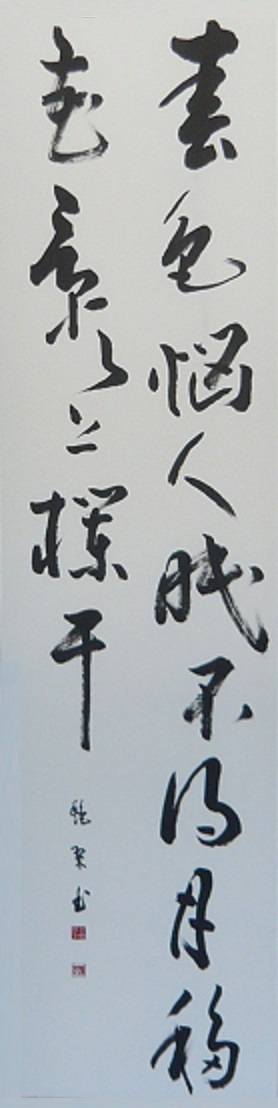 春色悩人眠不得月移
花影上欄干